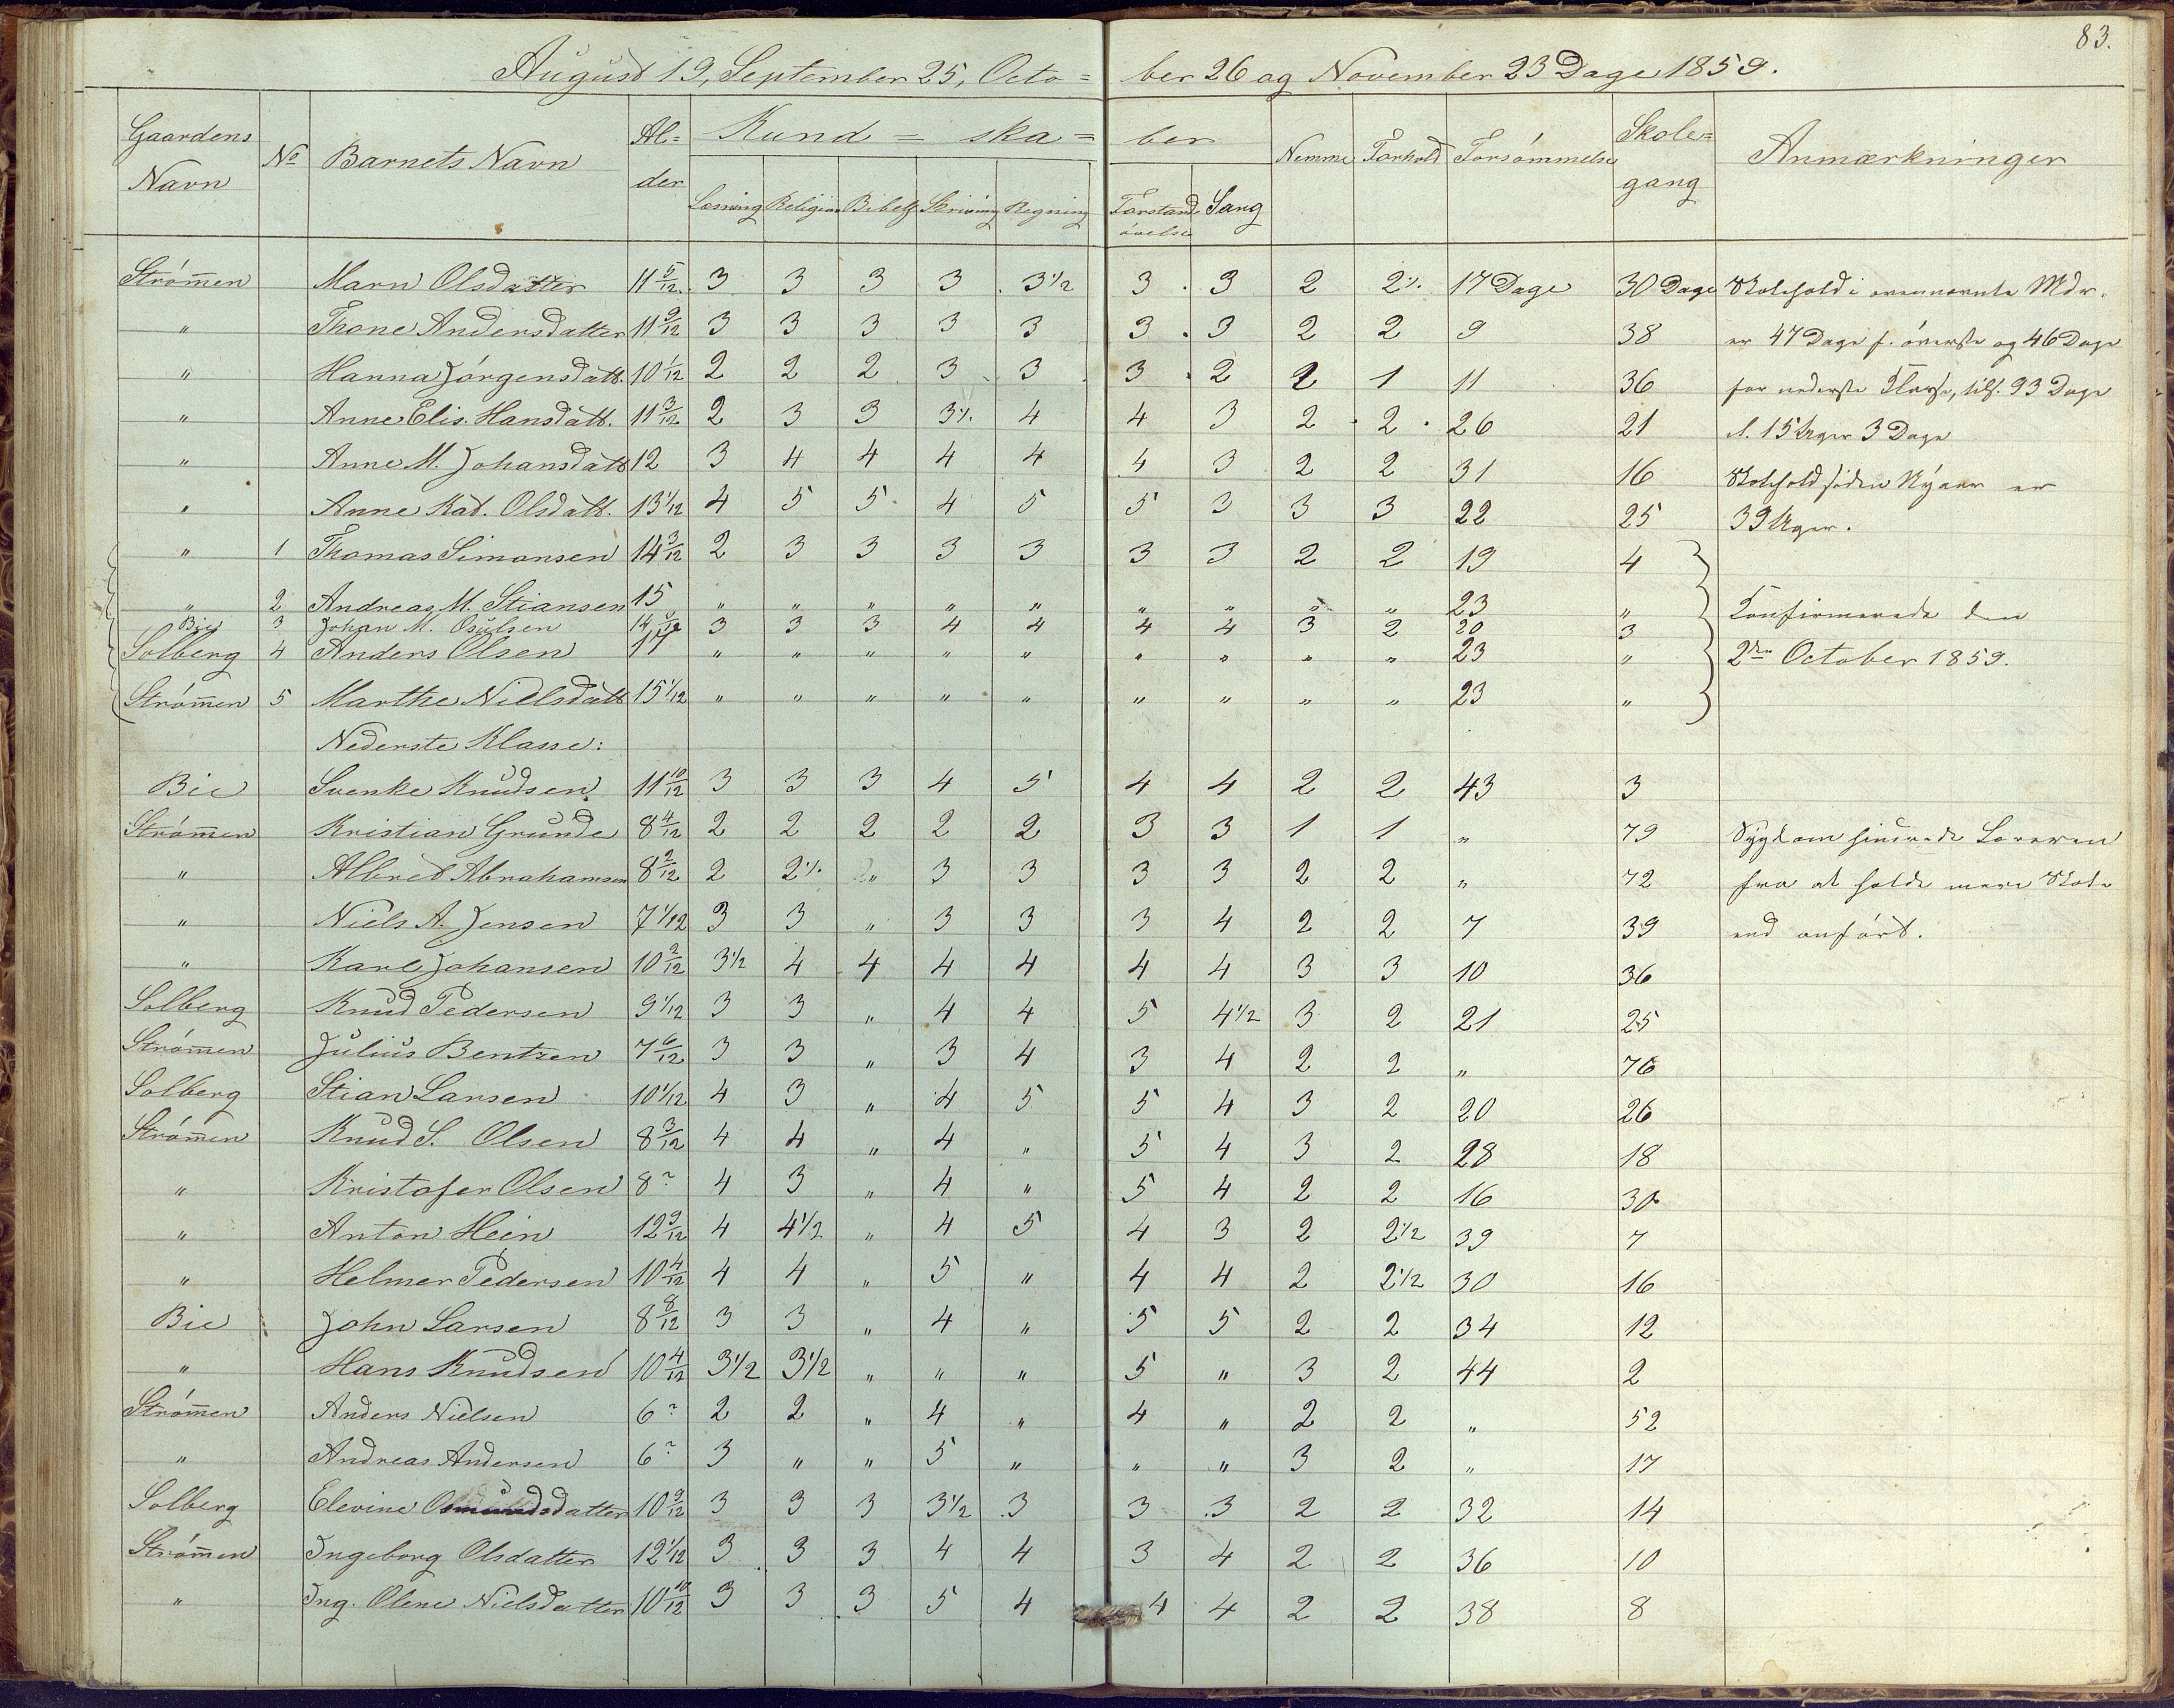 83.
August 19, September 25, Octo= ber 26 og November 23 Dage 1859.
Gaardens Navn | No | Barnets Navn | Al=der | Kund= ska= ber | Nemme | Forhold | Forsömmelse | Skole=gang | Anmærkninger
Læsning | Religion | Bibelh | Skrivning | Regning | Forstands övelse | Sang
Strömen Marn Olsdatter 11 5/12 3 3 3 3 3 1/2 3 3 2 2 1/. 17 Dage 30 Dage Skolehold i ovennævnte Mdr.
" Thone Andersdatter 11 9/12 3 3 3 3 3 3 3 2 2 9 38 er 47 Dage f. överste og 46 Dage
" Hanna Jörgensdatt. 10 1/12 2 2 2 3 3 3 2 2 1 11 36 for nederste Klasse, tils. 93 Dage
" Anne Elis. Hansdatt. 11 3/12 2 3 3 3 1/. 4 4 3 2 2 26 21 el. 15 Uger 3 Dage
" Anne M. Johansdatt 12 3 4 4 4 4 4 3 2 2 31 16 Skolehold siden Nyaar er
" Anne Kat. Olsdatt. 13 1/12 4 5 5 4 5 5 3 3 3 22 25 39 Uger.
" 1 Thomas Simonsen 14 3/12 2 3 3 3 3 3 3 2 2 19 4
" 2 Andreas M. Stiansen 15 " " " " " " " " " 23 " Konfirmerede den
Bie 3 Johan M. Osulsen 14 3 3 3 4 4 4 4 3 2 20 3
Solberg 4 Anders Olsen 17 " " " " " " " " " 23 " 2den October 1859.
Strömen 5 Marthe Nielsdatt 15 1/12 " " " " " " " " " 23 "
Nederste Klasse:
Bie Svenke Knudsen 11 10/12 3 3 3 4 5 4 4 2 2 43 3
Strömen Kristian Grunde 8 4/12 2 2 2 2 2 3 3 1 1 " 79 Sygdom hindrede Læreren
" Albret Abrahamsen 8 2/12 2 2 1/. " 3 3 3 3 2 2 " 72 fra at holde mere Skole
" Niels A. Jensen 7 1/12 3 3 " 3 3 3 4 2 2 7 39 end anfört.
" Karl Johansen 10 2/12 3 1/2 4 4 4 4 4 4 3 3 10 36
Solberg Knud Pedersen 9 1/12 3 3 " 4 4 5 4 1/2 3 2 21 25
Strömen Julius Bentzen 7 6/12 3 3 " 3 4 3 4 2 2 " 76
Solberg Stian Larsen 10 1/12 4 3 " 4 5 5 4 3 2 20 26
Strömen Knud S. Olsen 8 3/12 4 4 " 4 " 5 4 3 2 28 18
" Kristofer Olsen 8 ? 4 3 " 4 " 5 4 2 2 16 30
" Anton Hein 12 9/12 4 4 1/2 " 4 5 4 3 2 2 1/2 39 7
" Helmer Pedersen 10 4/12 4 4 " 5 " 4 4 2 2 1/2 30 16
Bie John Larsen 8 8/12 3 3 " 4 " 5 5 2 2 34 12
" Hans Knudsen 10 4/12 3 1/2 3 1/2 " " " 5 " 3 2 44 2
Strömen Anders Nielsen 6 ? 2 2 " 4 " 4 " 2 2 " 52
" Andreas Andersen 6 ? 3 " " 5 " " " 3 2 " 17
Solberg Elevine Osmundsdatter 10 9/12 3 3 3 3 1/2 3 3 3 2 2 32 14
Strömen Ingeborg Olsdatter 12 1/12 3 3 3 4 4 3 4 2 2 36 10
" Ing. Olene Nielsdatter 10 10/12 3 3 3 5 4 4 4 2 2 38 8